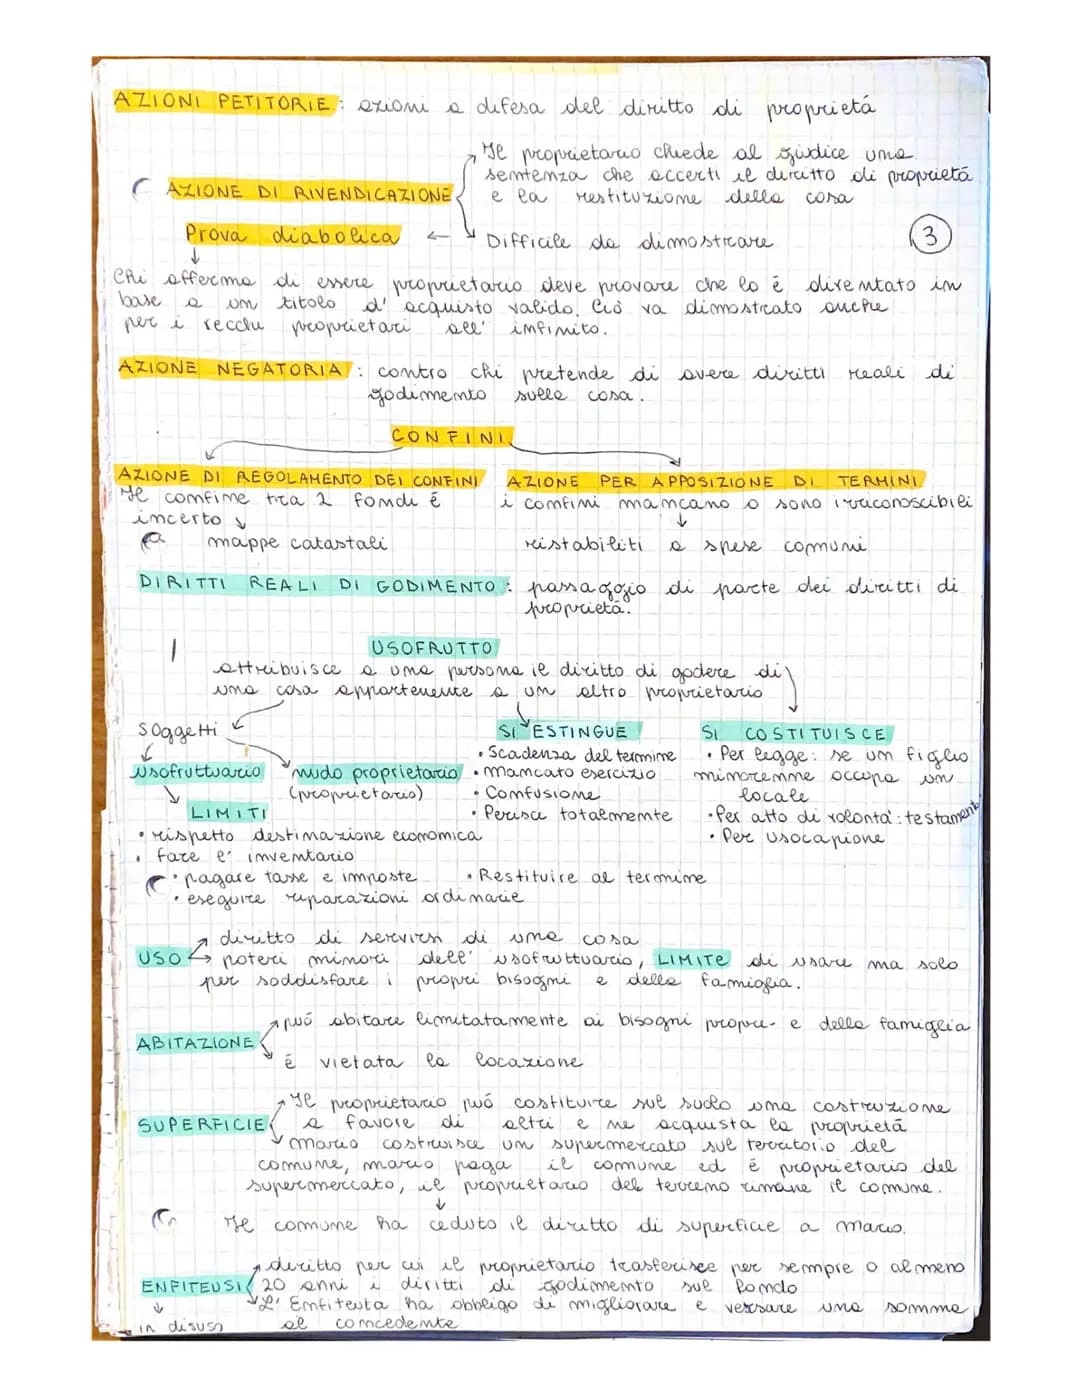 AZIONI PETITORIE: azioni a difesa del diritto di proprietá
Il proprietario chiede al giudice una
sentenza che accerti il diritto di proprietá
AZIONE DI RIVENDICAZIONE e la restituzione della cosa
Prova diabolica ← Difficile da dimostrare
3
Chi afferma di essere proprietario deve provare che lo é diventato in
base a un titolo d'acquisto valido. Ció va dimostrato anche
per i vecchi proprietari all'infinito.
AZIONE NEGATORIA: contro chi pretende di avere diritti reali di
godimento sulla cosa.
CONFINI
AZIONE DI REGOLAMENTO DEI CONFINI
Il confine tra 2 fondi é
incerto
mappe catastali
AZIONE PER APPOSIZIONE DI TERMINI
i confini mancano o sono irriconoscibili
ristabiliti a spese comuni
DIRITTI REALI DI GODIMENTO: passaggio di parte dei diritti di
proprietá.
USOFRUTTO
attribuisce a una persona il diritto di godere di
una cosa appartenente a un altro proprietario
soggetti
usofruttuario
nudo proprietario
(proprietario)
LIMITI
• rispetto destinazione economica
• fare l'inventario
• pagare tasse e imposte
• Restituire al termine
• eseguire riparazioni ordinarie
SI ESTINGUE
• Scadenza del termine
• mancato esercizio
• Confusione
• Perisce totalmente
SI COSTITUISCE
• Per legge: se un figlio
minorenne occupa un
locale
• Per atto di volontá: testamento
• Per usocapione
diritto di servirsi di una cosa
USO poteri minori dell'usofruttuario, LIMITE di usare ma solo
per soddisfare i propri bisogni e della famiglia.
può abitare limitatamente ai bisogni propri e della famiglia
ABITAZIONE
é vietata la locazione
Il proprietario puó costituire sul suolo una costruzione
SUPERFICIE a favore di altri e ne acquista la proprietá
mario costruisce un supermercato sul territorio del
comune, mario paga il comune ed é proprietario del
supermercato, il proprietario del terreno rimane il comune.
Il comune ha ceduto il diritto di superficie a mario.
diritto per cui il proprietario trasferisce per sempre o almeno
ENFITEUSI 20 anni i diritti di godimento sul fondo
L'Enfiteuta ha obbligo di migliorare e versare una somma
in disuso al concedente